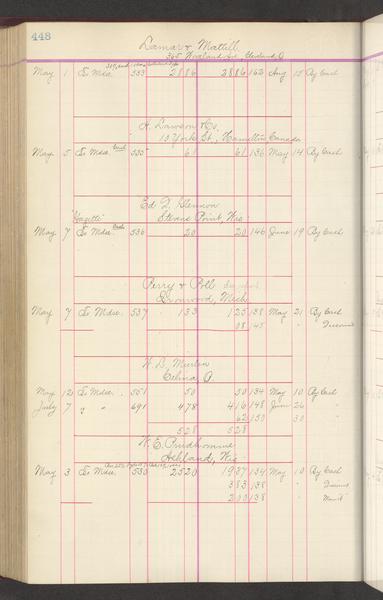 448
Lamar & Mattill
365 Woodland Ave, Cleveland, O
May 1 To Mdse. 533 2886 2886 162 Aug 15 By Cash
A. Lawson & Co.
13 York St., Hamilton Canada
May 5 To Mdse Cash 535 61 61 136 May 14 By Cash
Ed. D. Glennon
Stevens Point, Wis
"Gazette"
May 7 To Mdse Cash 536 20 20 146 June 19 By Cash
Perry & Poll
Ironwood, Mich
May 7 To Mdse. 537 133 125 138 May 21 By Cash
08 145 " Discount
W. B. Murlin
Celina, O.
May 12 To Mdse. 551 50 50 134 May 10 By Cash
July 7 " " 691 478 416 148 June 26 "
62 150 30
528 528
W. E. Prudhomme
Ashland, Wis
May 3 To Mdse. 530 2520 1937 134 May 10 By Cash
383 138 "
200 138 "